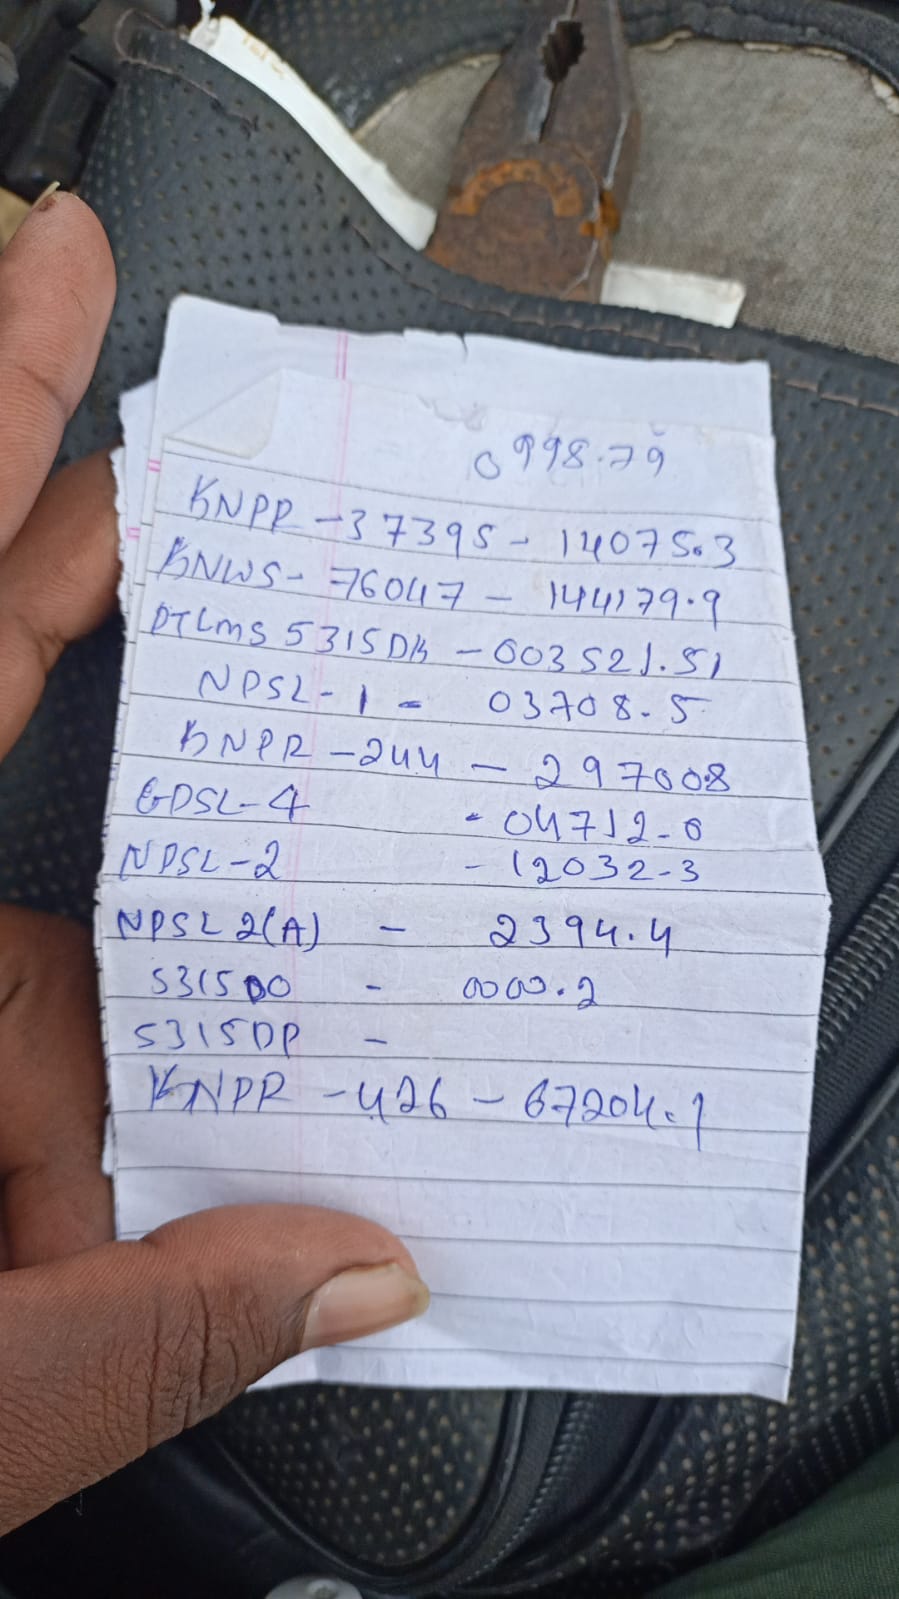 0998.79
KNPR - 37395 - 14075.3
KNWS - 76047 - 144179.9
PTLMS 5315DB - 003521.51
NPSL - 1 - 03708.5
KNPR - 244 - 297008
GPSL - 4 - 04712.0
NPSL - 2 - 12032.3
NPSL 2(A) - 2394.4
5315DO - 0000.2
5315DP -
KNPR - 426 - 67204.1